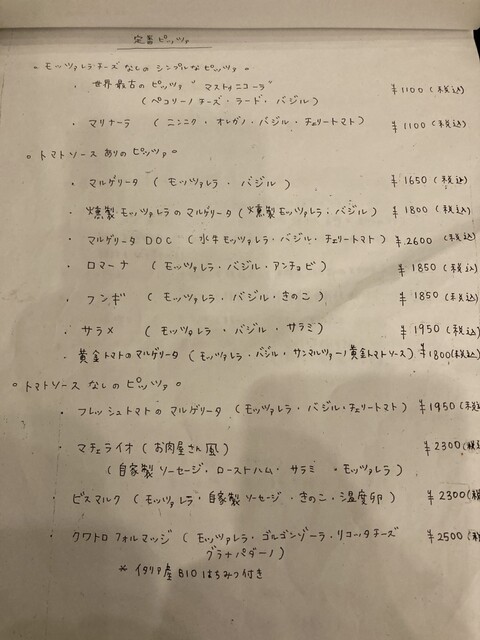 定番ピッツァ
○モッツァレラチーズなしのシンプルなピッツァ○
・世界最古のピッツァ "マストゥニコーラ" ¥1100(税込)
(ペコリーノチーズ・ラード・バジル)
・マリナーラ (ニンニク・オレガノ・バジル・チェリートマト) ¥1100(税込)
○トマトソースありのピッツァ○
・マルゲリータ (モッツァレラ・バジル) ¥1650(税込)
・燻製モッツァレラのマルゲリータ(燻製モッツァレラ・バジル) ¥1800(税込)
・マルゲリータDOC (水牛モッツァレラ・バジル・チェリートマト) ¥2600(税込)
・ロマーナ (モッツァレラ・バジル・アンチョビ) ¥1850(税込)
・フンギ (モッツァレラ・バジル・きのこ) ¥1850(税込)
・サラメ (モッツァレラ・バジル・サラミ) ¥1950(税込)
・黄金トマトのマルゲリータ (モッツァレラ・バジル・サンマルツァーノ黄金トマトソース) ¥1800(税込)
○トマトソースなしのピッツァ○
・フレッシュトマトのマルゲリータ (モッツァレラ・バジル・チェリートマト) ¥1950(税込
・マチェライオ (お肉屋さん風) ¥2300(税
(自家製ソーセージ・ローストハム・サラミ・モッツァレラ)
・ビスマルク (モッツァレラ・自家製ソーセージ・きのこ・温度卵) ¥2300(税
・クワトロフォルマッジ (モッツァレラ・ゴルゴンゾーラ・リコッタチーズ ¥2500(税
グラナパダーノ)
*イタリア産BIOはちみつ付き